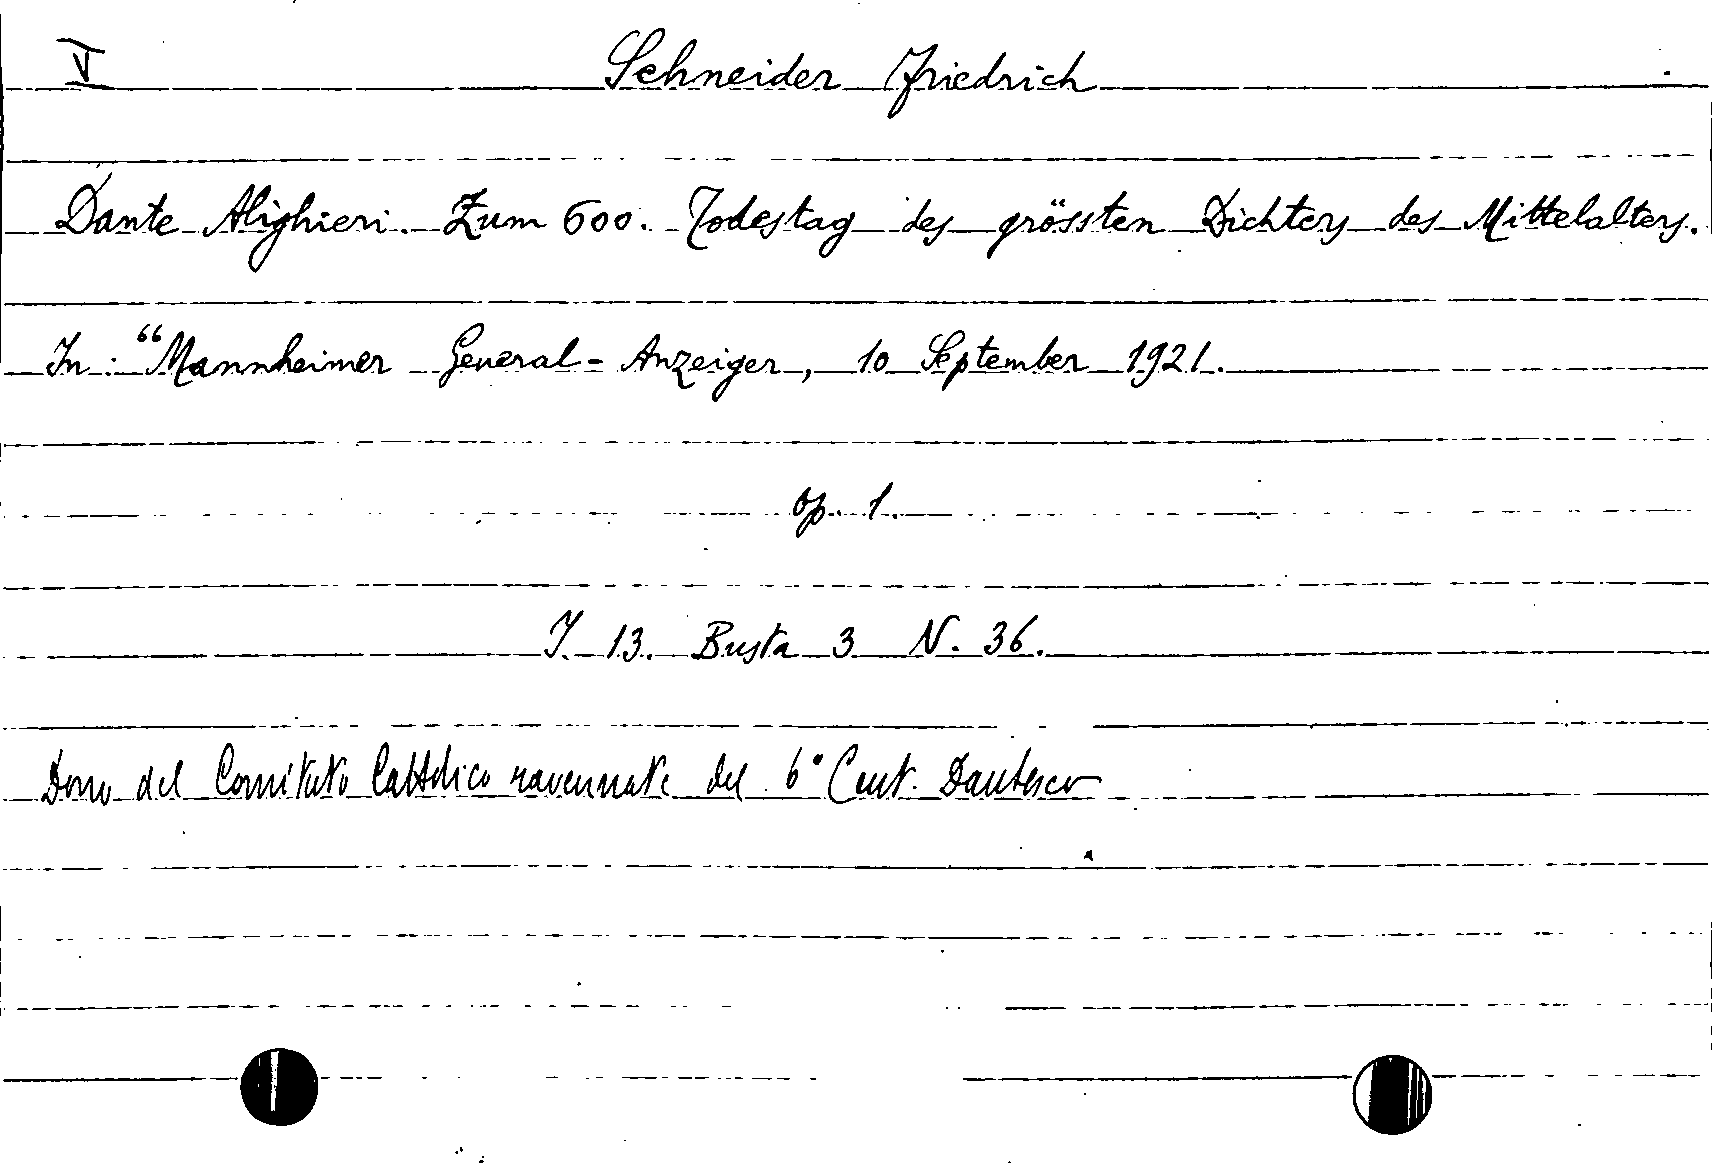 V
Schneider Friedrich
Dante Alighieri. Zum 600. Todestag des grössten Dichters des Mittelalters.
In: “Mannheimer General-Anzeiger, 10 September 1921.
op. 1.
I. 13. Busta 3 N. 36.
Dono del Comitato Cattolico ravennate del 6° Cent. Dantesco